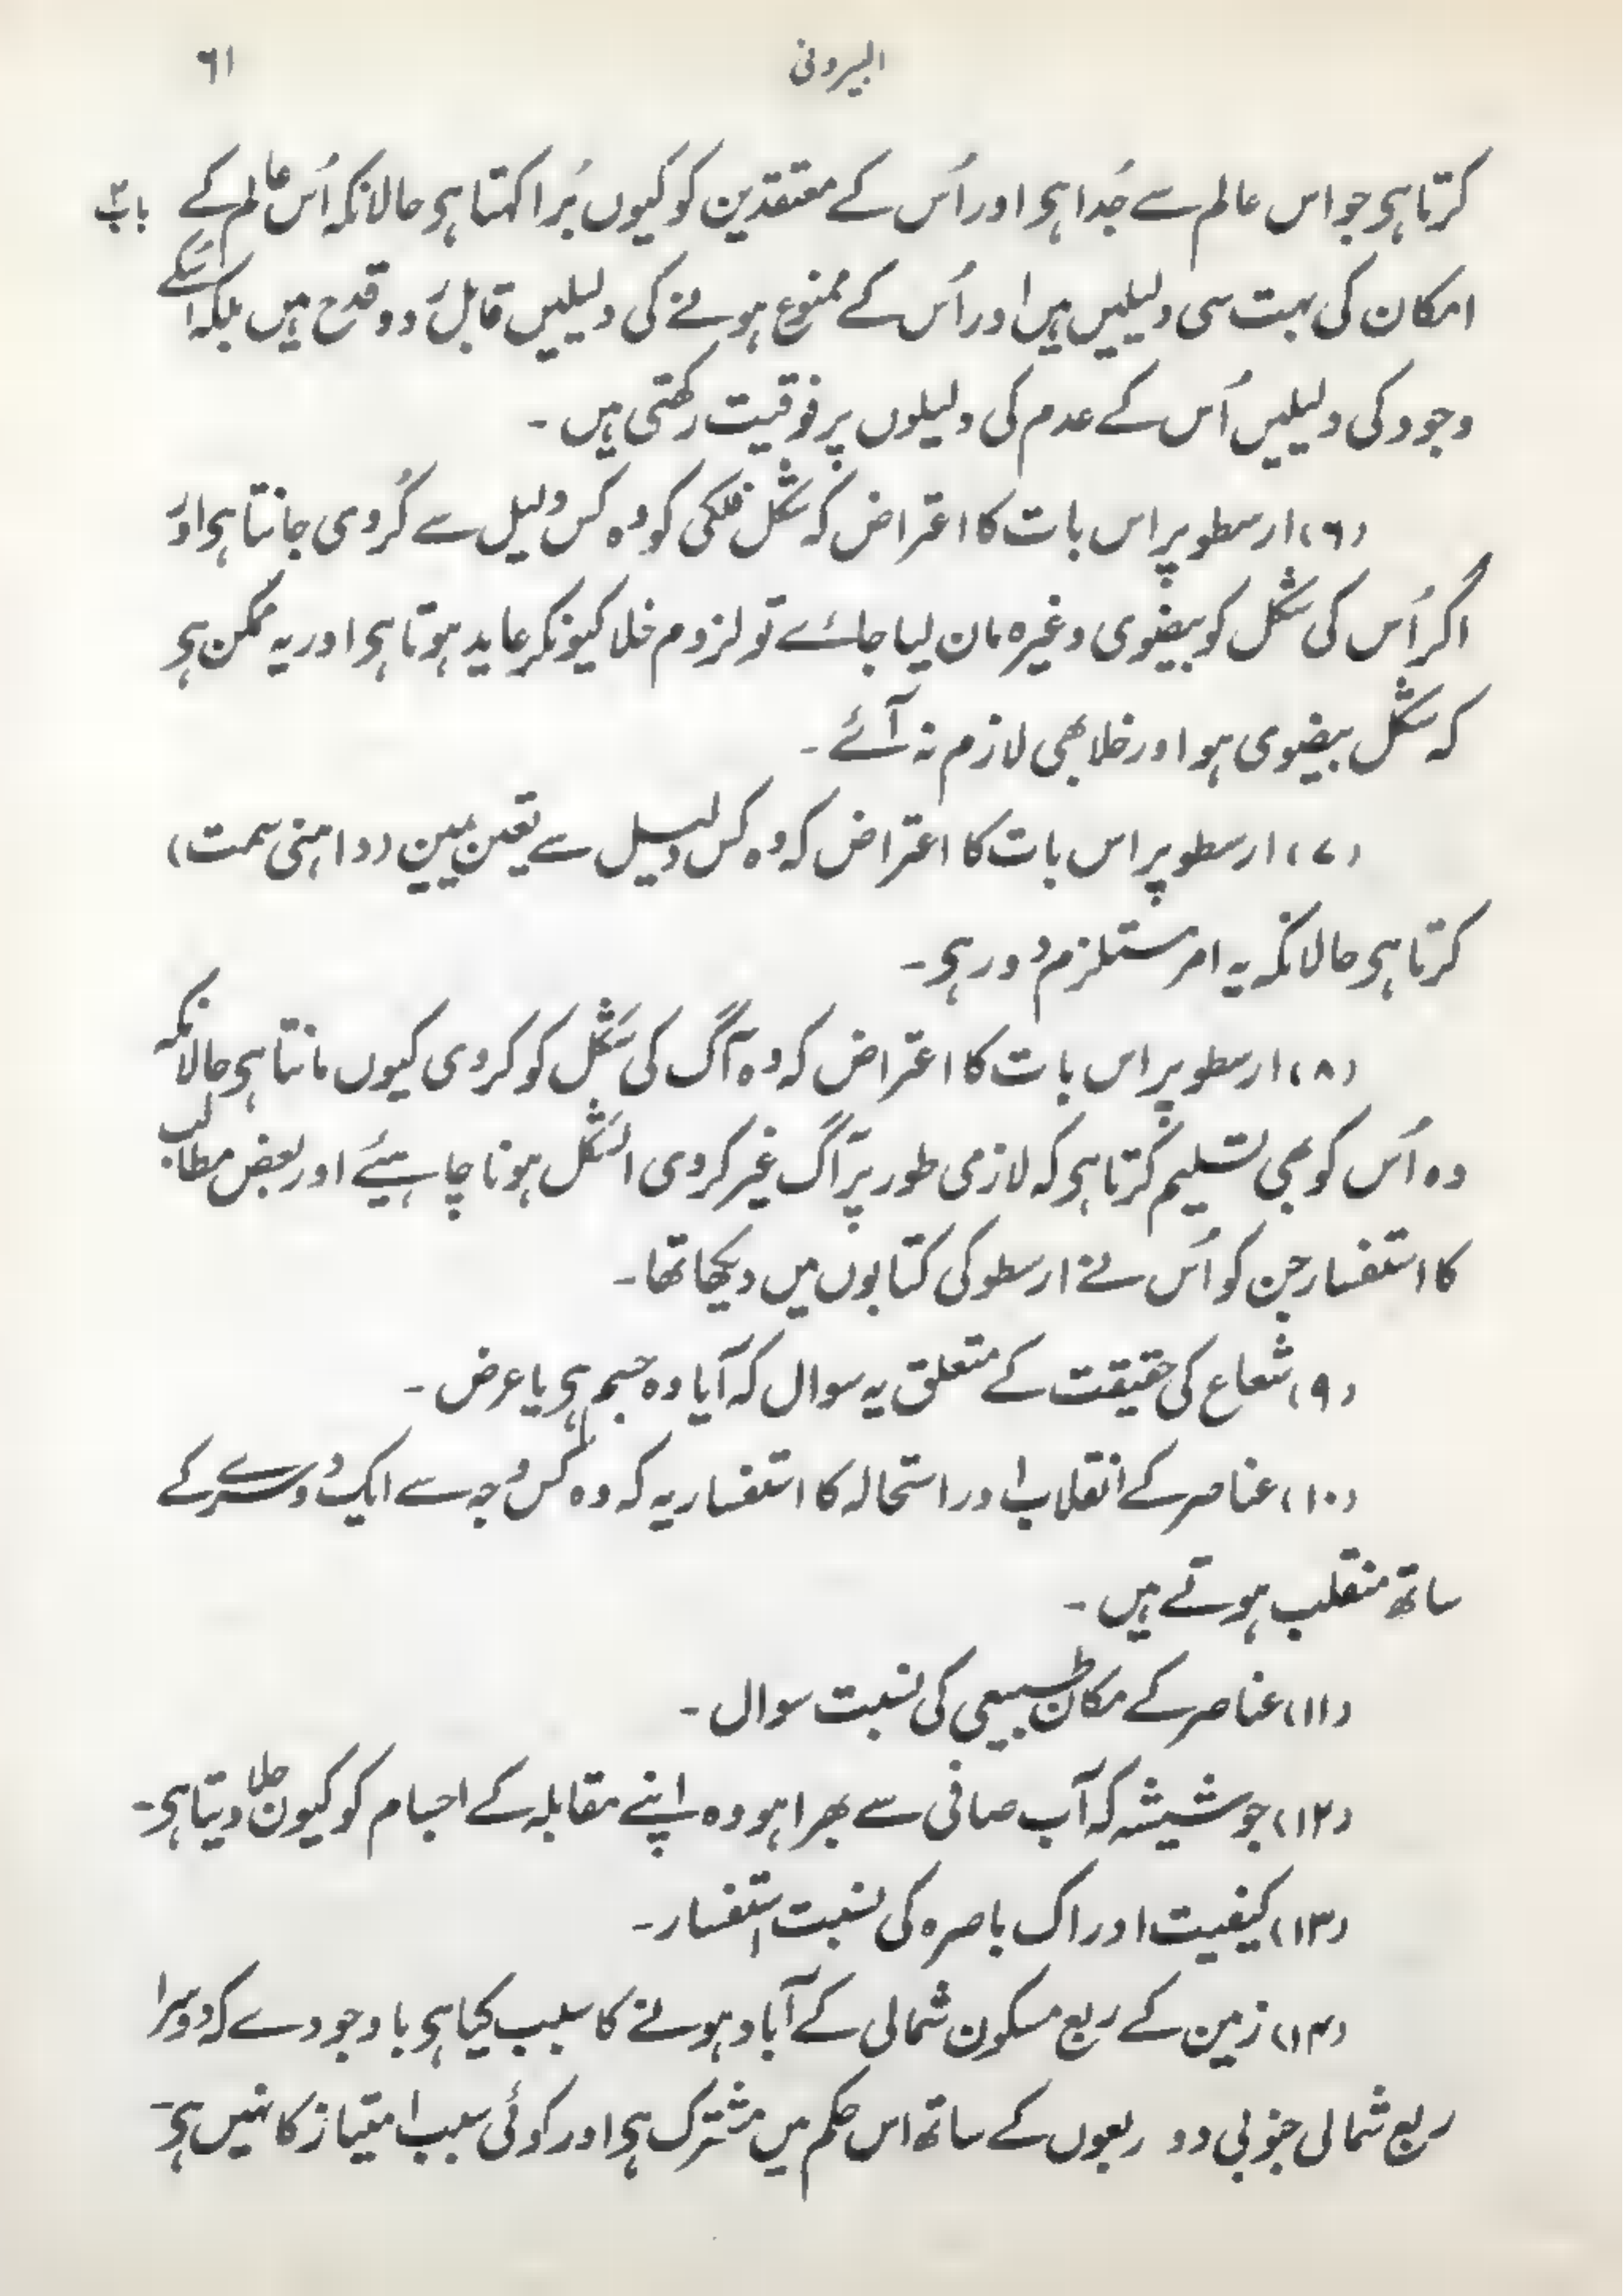 البیرونی ٦١
کرتا ہی جو اس عالم سے جُدا ہی اور اُس کے معتقدین کو کیوں بُرا کہتا ہی حالانکہ اُس عالم کے
باب
امکان کی بہت سی دلیلیں ہیں اور اُس کے ممنوع ہونے کی دلیلیں قابل رد و قدح ہیں بلکہ اسکے
وجود کی دلیلیں اُس کے عدم کی دلیلوں پر فوقیت رکھتی ہیں ۔
(٦) ارسطو پر اس بات کا اعتراض کہ شکل فلکی کو وہ کس دلیل سے کُروی جانتا ہی اور
اگر اُس کی شکل کو بیضوی وغیرہ مان لیا جائے تو لزوم خلا کیونکر عاید ہوتا ہی اور یہ ممکن ہی
کہ شکل بیضوی ہو اور خلا بھی لازم نہ آئے ۔
(۷) ارسطو پر اس بات کا اعتراض کہ وہ کس دلیل سے تعین یمین (داہنی سمت)
کرتا ہی حالانکہ یہ امر مستلزم دور ہی ۔
(۸) ارسطو پر اس بات کا اعتراض کہ وہ آگ کی شکل کو کروی کیوں مانتا ہی حالانکہ
وہ اُس کو بھی تسلیم کرتا ہی کہ لازمی طور پر آگ غیر کروی الشکل ہونا چاہیئے اور بعض مطالب
کا استفسار جن کو اُس نے ارسطو کی کتابوں میں دیکھا تھا ۔
(۹) شعاع کی حقیقت کے متعلق یہ سوال کہ آیا وہ جسم ہی یا عرض ۔
(۱۰) عناصر کے انقلاب اور استحالہ کا استفسار یہ کہ وہ کس وجہ سے ایک دوسرے کے
ساتھ منقلب ہوتے ہیں ۔
(۱۱) عناصر کے مکان طبیعی کی نسبت سوال ۔
(۱۲) جو شیشہ کہ آب صافی سے بھرا ہو وہ اپنے مقابلہ کے اجسام کو کیوں جلا دیتا ہی ۔
(۱۳) کیفیت ادراک باصرہ کی نسبت استفسار ۔
(۱۴) زمین کے ربع مسکون شمالی کے آباد ہونے کا سبب کیا ہی باوجودے کہ دوسرا
ربع شمالی جنوبی دو ربعوں کے ساتھ اس حکم میں مشترک ہی اور کوئی سبب امتیاز کا نہیں ہی ۔